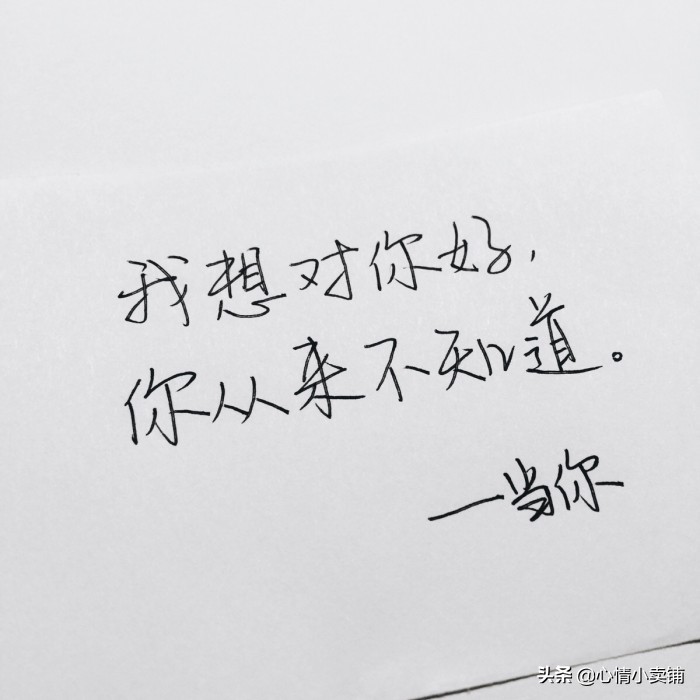 我想对你好,
你从来不知道。
—当你
头条 @心情小卖铺